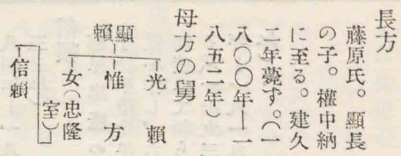 長方
藤原氏。顯長
の子。權中納
言に至る。建久
二年薨ず。(一
八〇〇年—一
八五二年)
母方の舅
顯頼
光頼
惟方
女(忠隆
室)
信頼